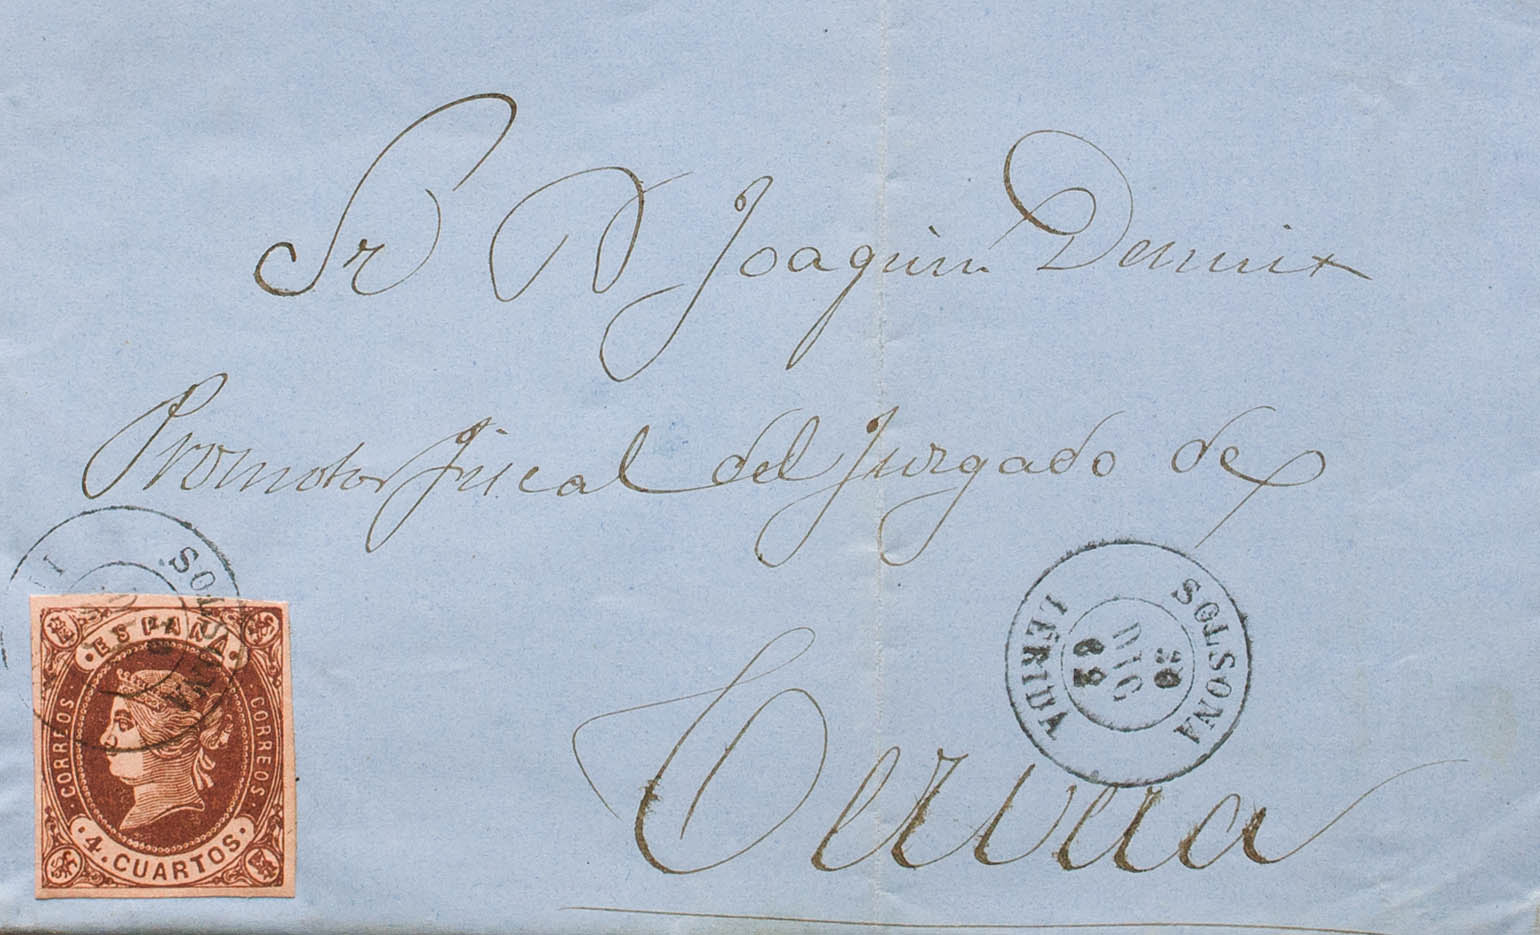 Sr D Joaquin
Promotor fiscal del Juzgado de
Cervera
SOLSONA
LÉRIDA
20
DIC
62
SOLSONA
ESPAÑA
CORREOS
CORREOS
4. CUARTOS